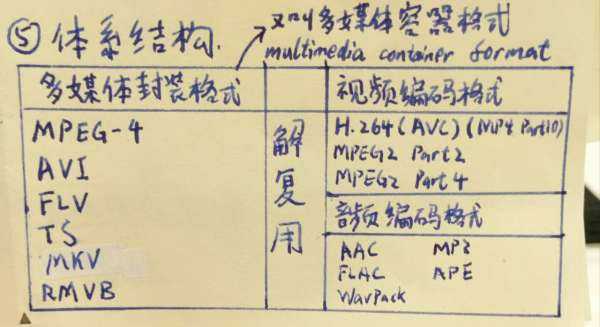 ⑤ 体系结构.
又叫多媒体容器格式
multimedia container format
多媒体封装格式
MPEG-4
AVI
FLV
TS
MKV
RMVB
解
复
用
视频编码格式
H.264 (AVC) (MP4 Part10)
MPEG2 Part 2
MPEG2 Part 4
音频编码格式
AAC MP3
FLAC APE
WavPack